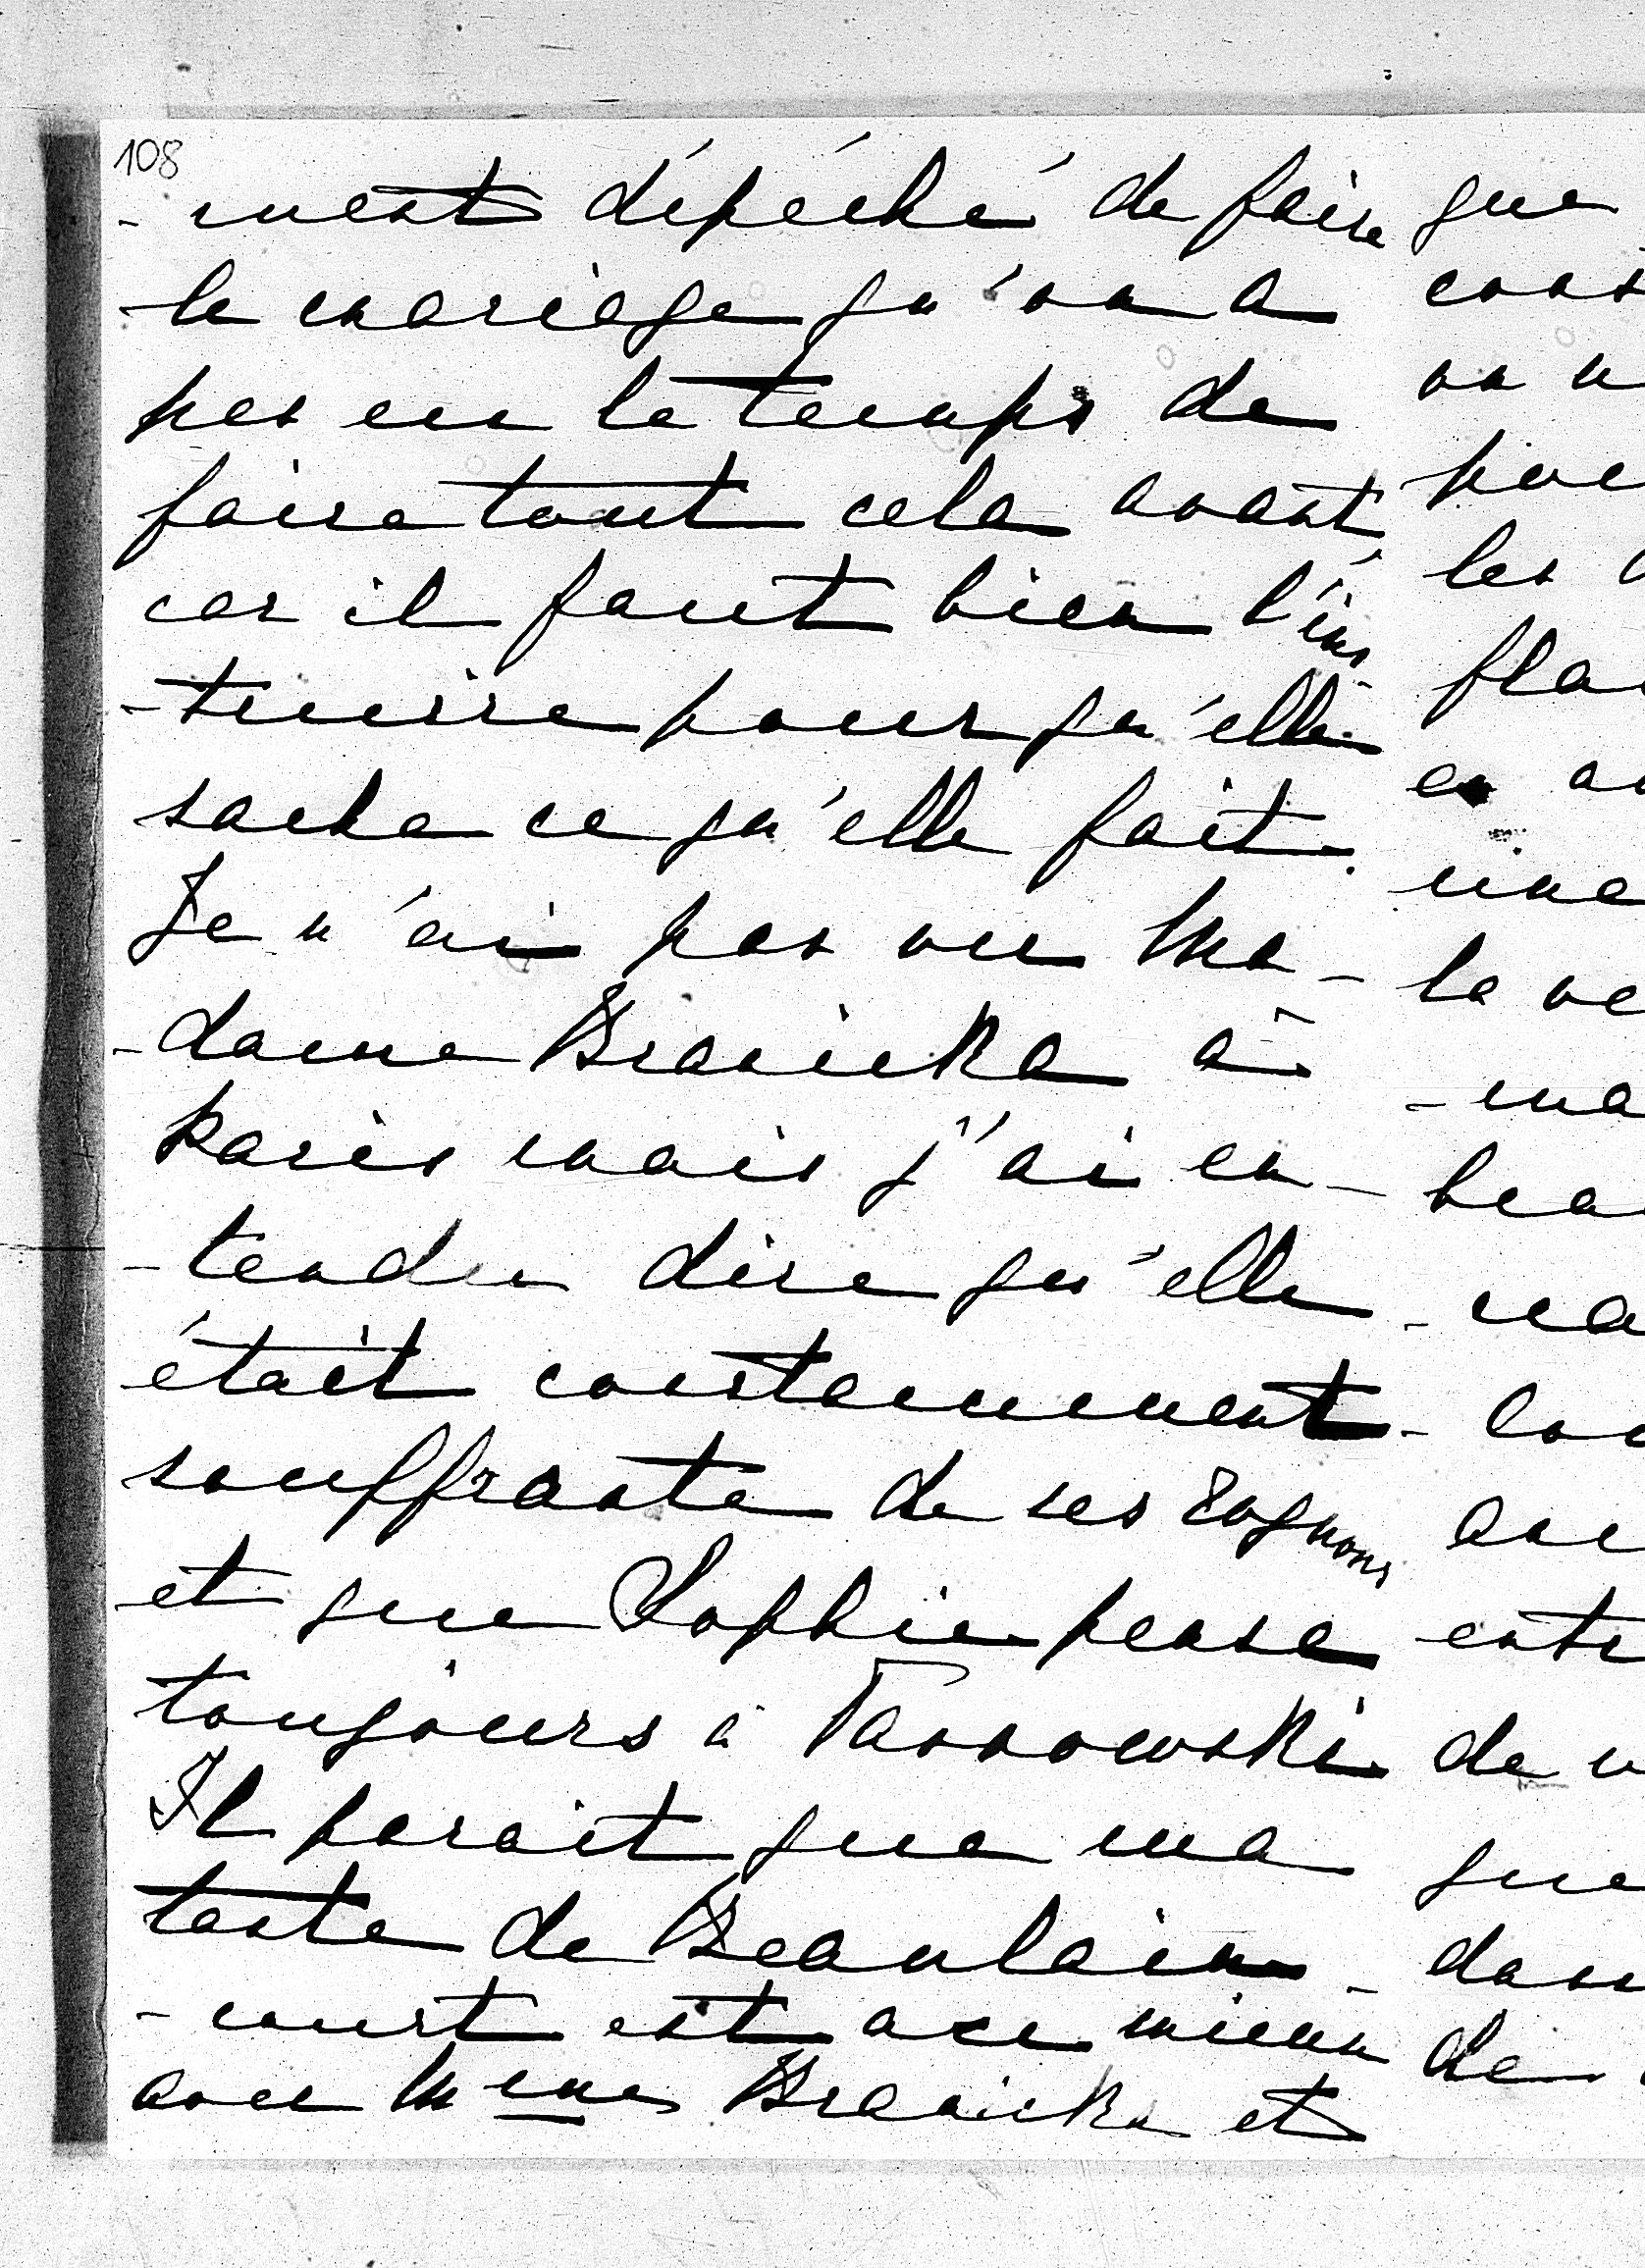 108
-ment dépéché de faire
le mariage qu'on a
pas eu le temps de
faire tout cela avant
car il faut bien l'ins-
-truire pour qu'elle
sache ce qu'elle fait.
Je n'ai pas vu Ma-
-dame Branicka à
Paris mais j'ai en-
-tendu dire qu'elle
était constamment
souffrante de ses rognons
et que Sophie pense
toujours à Tarnowski.
Il parait que ma
tante de Beaulain-
-court est au mieux
avec Mme Branicka et
que
cons
on n
pou
les
fla
en au
une
la ve
-ma
beau
-na
-lou
avec
entr
de v
que
dans
de